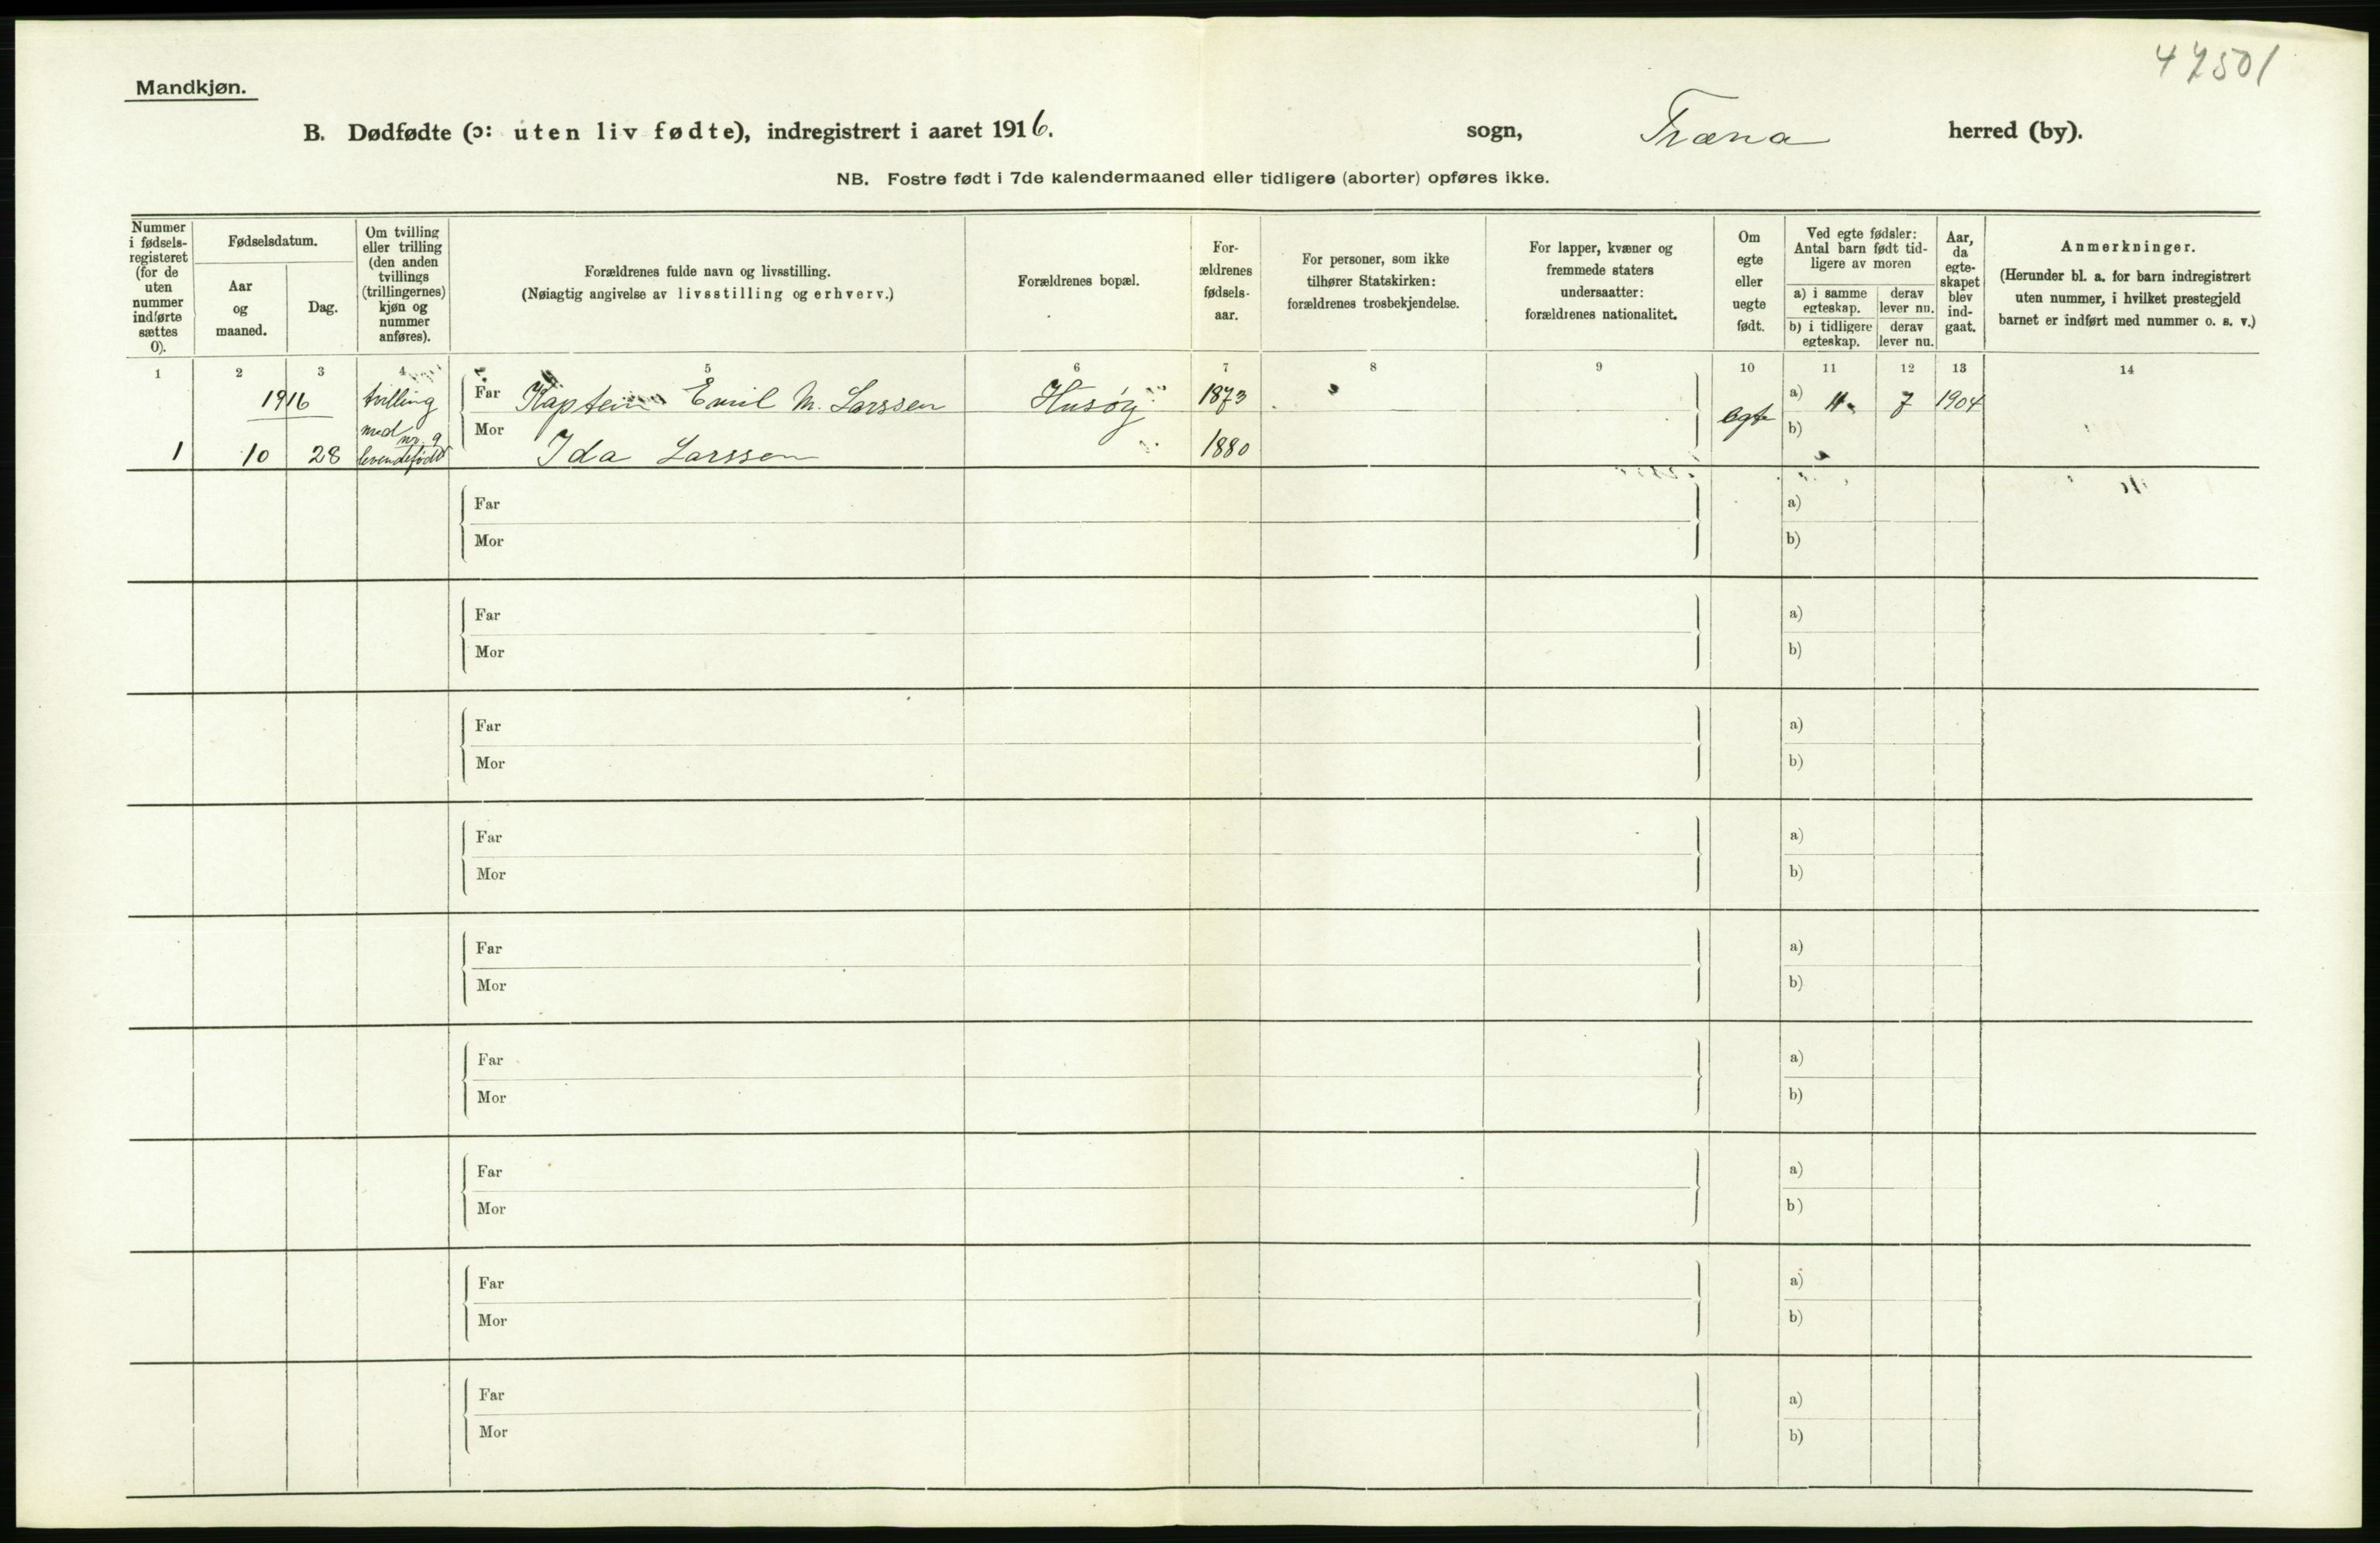 47501
Mandkjøn.
B. Dødfødte (ɔ: uten liv fødte), indregistrert i aaret 1916. sogn, Træna herred (by).
NB. Fostre født i 7de kalendermaaned eller tidligere (aborter) opføres ikke.
Nummer i fødsels-registeret (for de uten nummer indførte sættes 0).
Fødselsdatum.
Aar og maaned.
Dag.
Om tvilling eller trilling (den anden tvillings (trillingernes) kjøn og nummer anføres).
Forældrenes fulde navn og livsstilling.
(Nøiagtig angivelse av livsstilling og erhverv.)
Forældrenes bopæl.
For-ældrenes fødsels-aar.
For personer, som ikke tilhører Statskirken: forældrenes trosbekjendelse.
For lapper, kvæner og fremmede staters undersaatter: forældrenes nationalitet.
Om egte eller uegte født.
Ved egte fødsler: Antal barn født tid-ligere av moren
a) i samme egteskap. derav lever nu.
b) i tidligere egteskap. derav lever nu.
Aar, da egte-skapet blev ind-gaat.
Anmerkninger.
(Herunder bl. a. for barn indregistrert uten nummer, i hvilket prestegjeld barnet er indført med nummer o. s. v.)
1 2 3 4 5 6 7 8 9 10 11 12 13 14
1916 tvilling Far Kaptein Emil M. Larssen Husøy 1873 egte a) 7 1904
1 10 28 med nr. 9 levendefødt Mor Ida Larssen 1880 b)
Far a)
Mor b)
Far a)
Mor b)
Far a)
Mor b)
Far a)
Mor b)
Far a)
Mor b)
Far a)
Mor b)
Far a)
Mor b)
Far a)
Mor b)
Far a)
Mor b)